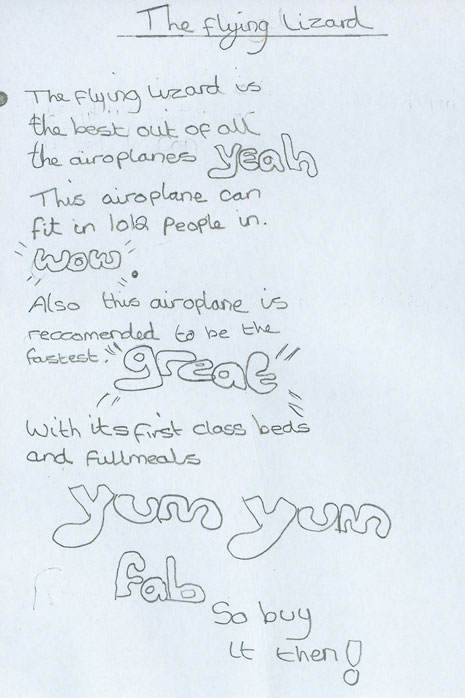 The flying lizard
The flying lizard is
the best out of all
the airoplanes yeah
This airoplane can
fit in 1012 people in.
wow.
Also this airoplane is
reccomended to be the
fastest. great
With its first class beds
and fullmeals
yum yum
fab
So buy
it then!